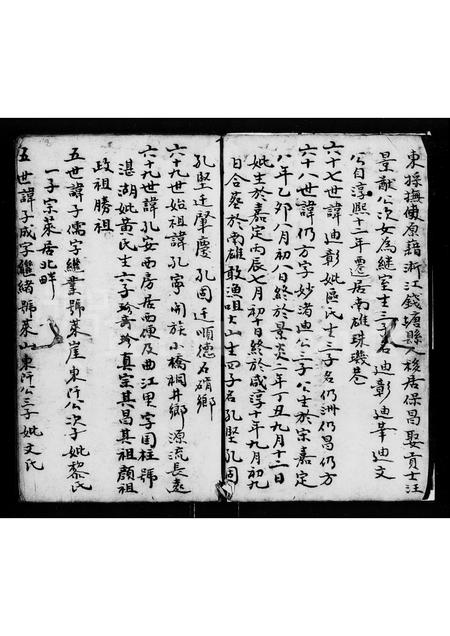 東採撫使原籍浙江錢塘縣人移居保昌娶貢士汪
景猷公次女為継室生三子名迪彰迪華迪文
公自淳熙十二年遷居南雄珠璣巷
六十七世諱迪彰妣區氏生三子名仍洲仍昌仍方
六十八世諱仍方字妙渚迪公三子公生於宗嘉定
八年乙卯八月初八日終於景炎二年丁丑九月十二日
妣生於嘉定丙辰七月初十日終於咸淳十年九月初九
日合葬於南雄敢漁咀大山生四子名孔堅孔固
孔堅迁肇慶孔固迁順德石硝鄉
六十九世始祖諱孔寧開族小橋桐井鄉源流長遠
六十九世諱孔安西房居西便及曲江里字国柱號
湛湖妣黃氏生六子珍奇珍真宗其昌其祖顏祖
政祖勝祖
五世諱子儒字継業號萊崖東阡公次子妣黎氏
一子宗萊居北畔
五世諱子成字継緒號萊山東阡公三子妣文氏